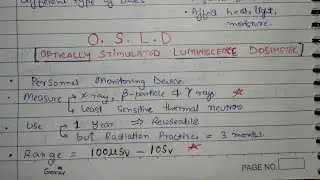 Different type of uses
• Affect heat, light,
moisture.
O. S. L. D
OPTICALLY STIMULATED LUMINISCENCE DOSIMETER
• Personnel Monitoring Device.
• Measure → X-ray, β-particle & γ ray
→ Least Sensitive thermal neutron
• Use → 1 Year ⇒ Reuseable
but Radiation Practises = 3 months.
• Range = 100μSv – 10Sv
Gorav
PAGE NO.